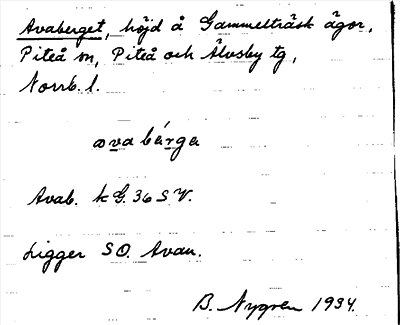 Avaberget, höjd å Gammelträsk ägor,
Piteå sn, Piteå och Älvsby tg,
Norrb. l.
ava bérga
Avab. k G. 36 S.V.
Ligger SO. Avan.
B. Nygren 1934.